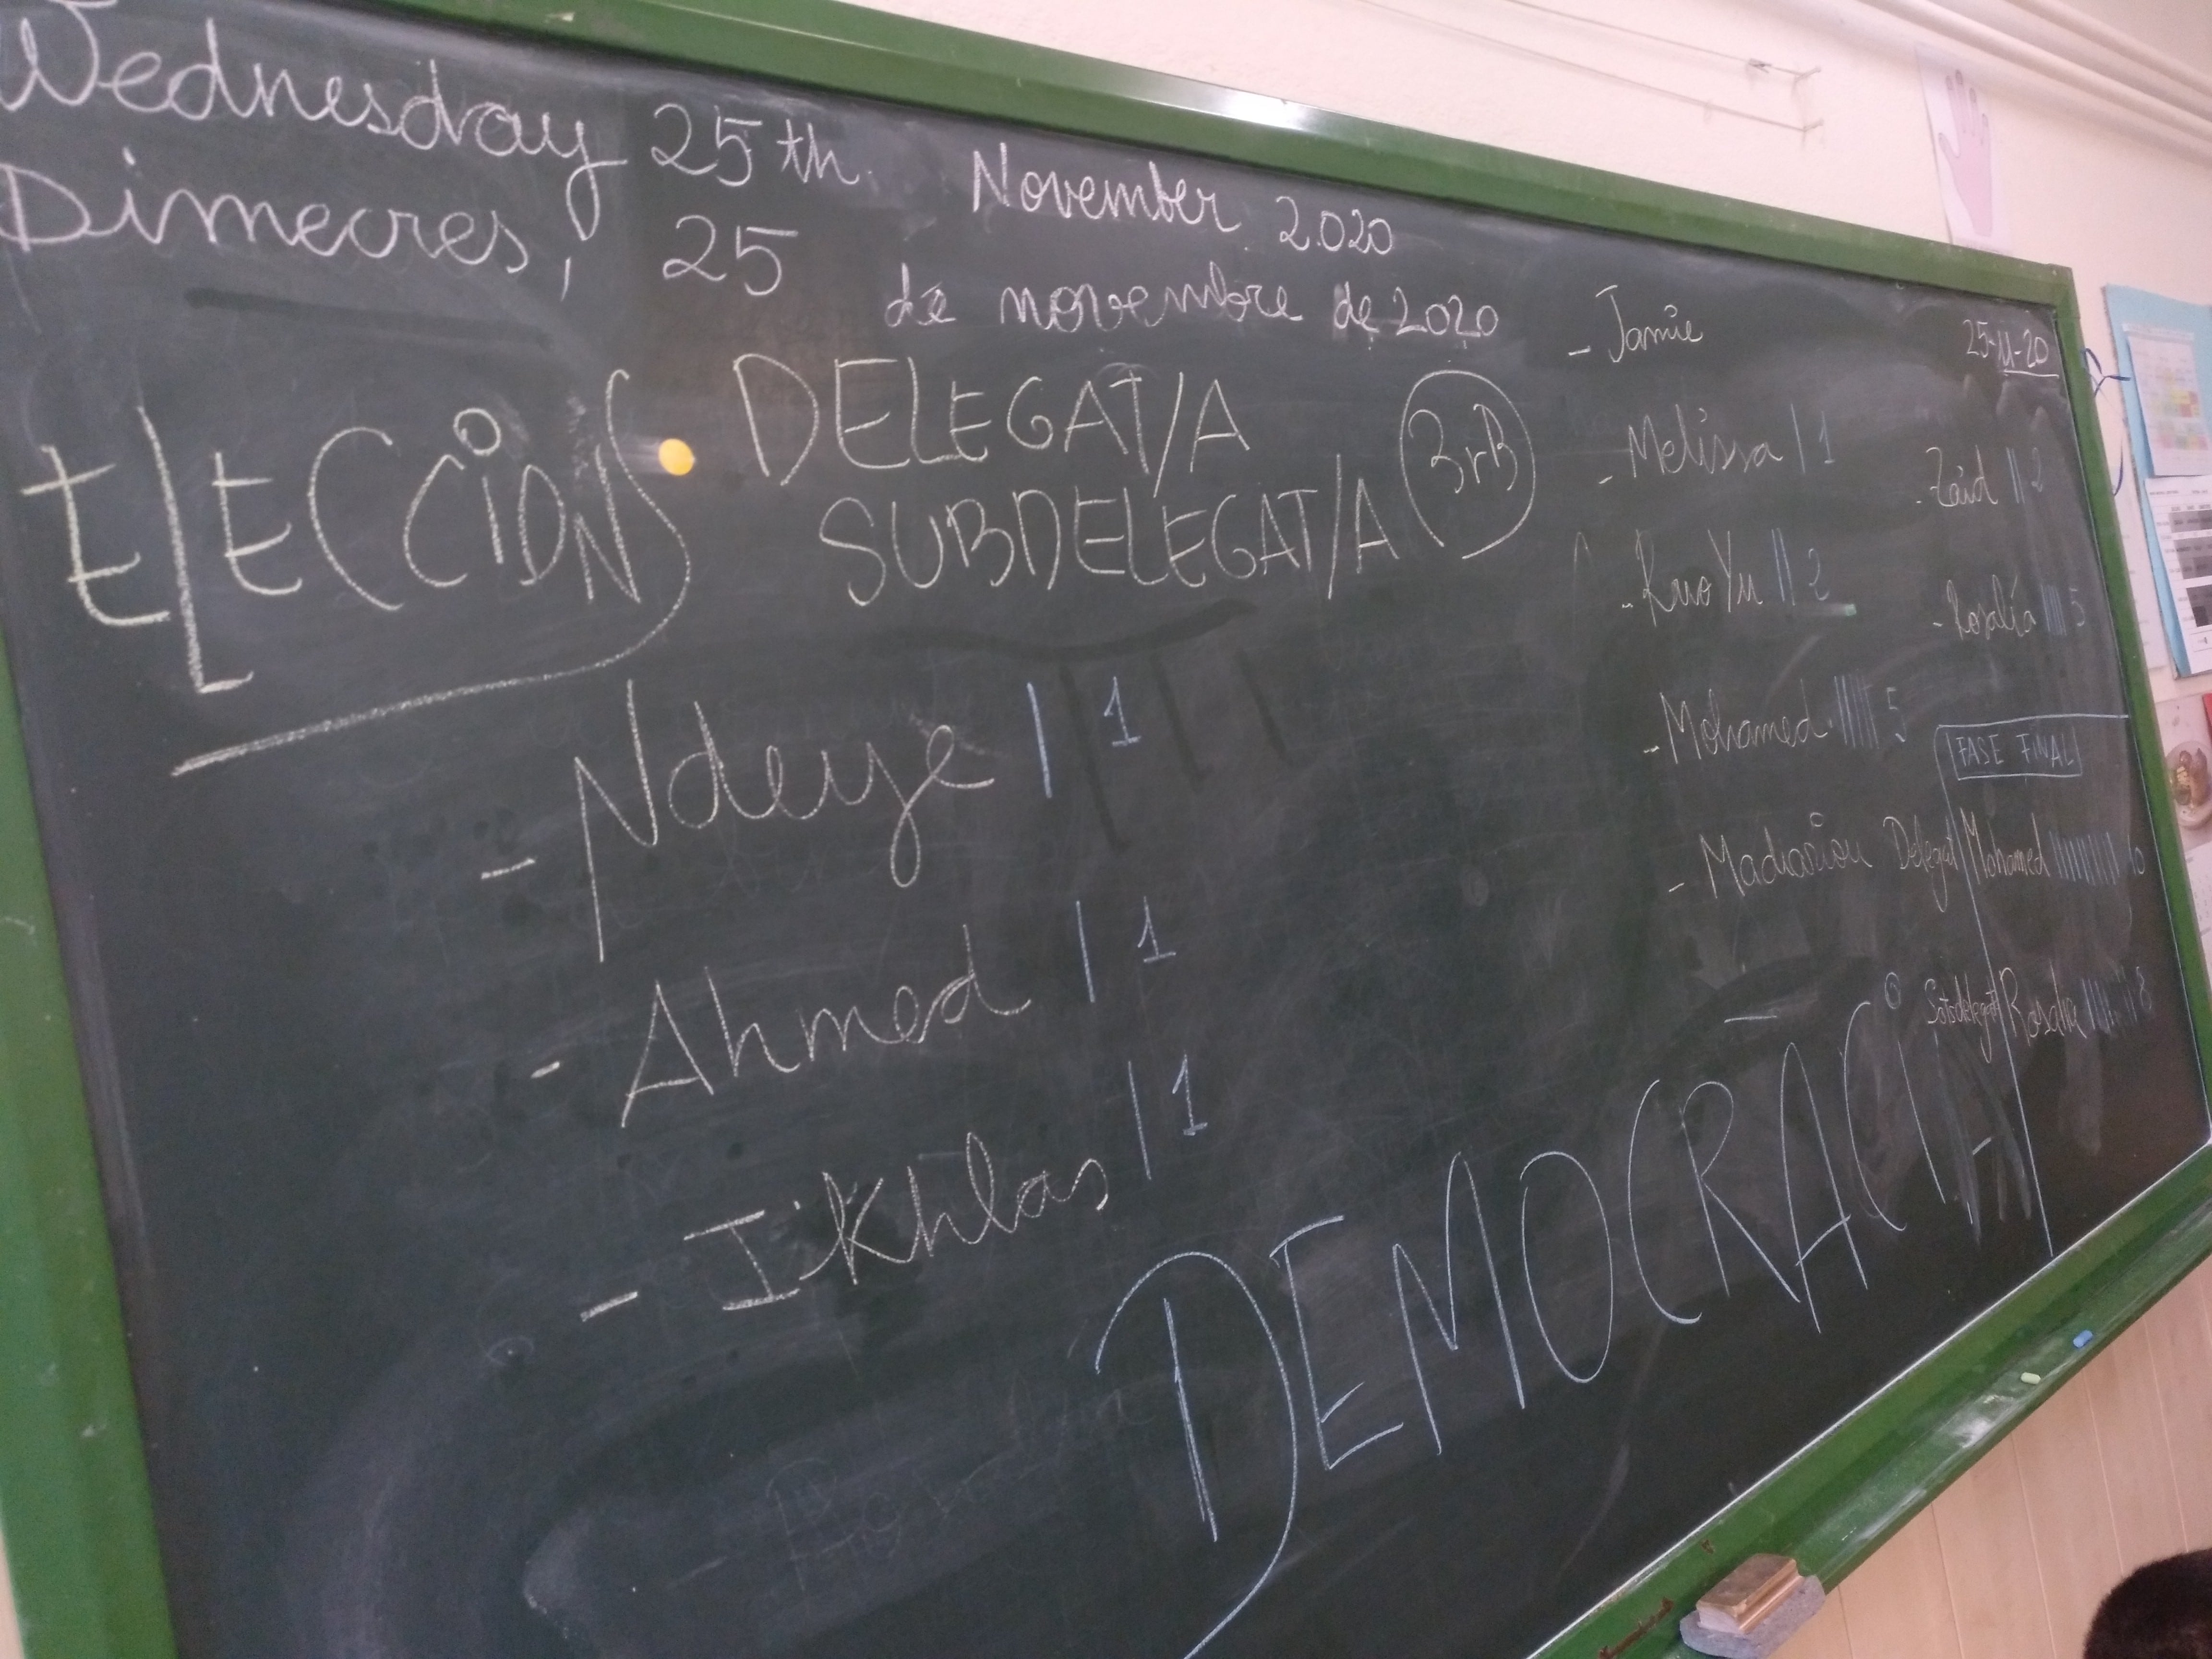 Wednesday 25th. November 2.020
Dimecres, 25 de novembre de 2020
ELECCIONS DELEGAT/A
SUBDELEGAT/A
3rB
- Ndeye | 1
- Ahmed | 1
- Ikhlas | 1
- Jamie
- Melissa | 1
- Kuo Yu || 2
- Mohamed ||||| 5
- Madiariou
25-11-20
- Zaid || 2
- Rosalía ||||| 5
FASE FINAL
Delegat Mohamed |||||||||| 10
Sotsdelegat Rosalía |||||||| 8
DEMOCRÀCIA